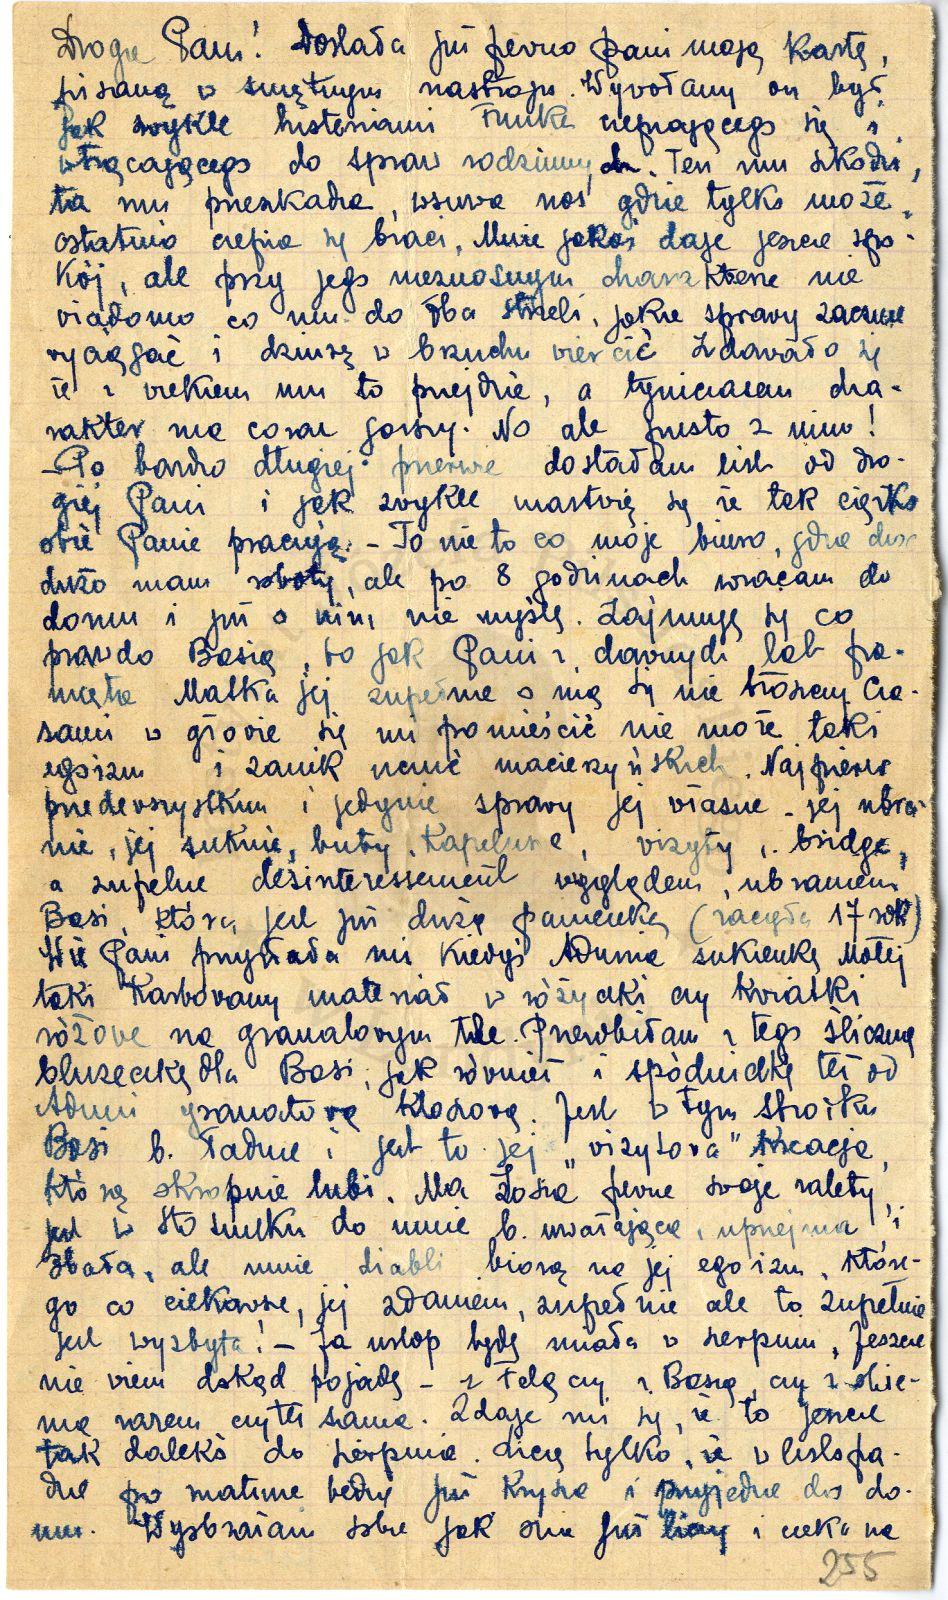 Drogie Panie! Dostała już pewno Pani moją kartę,
pisaną w smętnym nastroju. Wywołany on był
jak zwykle histeriami czepiającego się i
wtrącającego do spraw rodzinnych. Ten mu szkodzi,
ta mu przeszkadza, wsuwa nos gdzie tylko może,
ostatnio czepia się braci. Mnie jakoś daje jeszcze spo-
kój, ale przy jego nieznośnym charakterze nie
wiadomo co mu do łba strzeli, jakie sprawy zacznie
wyciągać i dziurę w brzuchu wiercić. Zdawało się
że z wiekiem mu to przejdzie, a tymczasem cha-
rakter ma coraz gorszy. No ale prosto z mim!
– Po bardzo długiej przerwie dostałam list od dro-
giej Pani i jak zwykle martwię się że tak ciężko
obie Panie pracują. – To nie to co moje biuro, gdzie
dużo mam roboty, ale po 8 godzinach wracam do
domu i już o nim nie myślę. Zajmuję się co
prawda Basią, bo jak Pani z dawnych lat pa-
mięta Matka jej zupełnie o nią się nie troszczy. Cza-
sami w głowie się mi pomieścić nie może taki
egoizm i zanik uczuć macierzyńskich. Najpierw
przedewszystkim i jedynie sprawy jej własne – jej ubra-
nie, jej suknie, buty, kapelusze, wizyty, bridge,
a zupełne desinteressement względem ubrania
Basi, która jest już dużą panienką (zaczęła 17 rok)
Wie Pani przysłała mi kiedyś Adunia sukienkę
taki karbowany materiał w różyczki czy kwiatki
różowe na granatowym tle. Przerobiłam z tego śliczną
bluzeczkę dla Basi, jak również i spódniczkę też od
Aduni granatową kloszową. Jest w tym stroiku
Basi b. ładnie i jest to jej „wizytowa” kreacja,
którą okropnie lubi. Ma Zosia pewne swoje zalety,
jest w stosunku do mnie b. uważająca, uprzejma i
dbała, ale mnie diabli biorą na jej egoizm, które-
go co ciekawsze, jej zdaniem, zupełnie ale to zupełnie
jest wyzbyta! – Ja urlop będę miała w sierpniu, jeszcze
nie wiem dokąd pojadę – z Felą czy z Basią, czy z obie-
ma razem czy też sama. Zdaje mi się, że to jeszcze
tak daleko do sierpnia. Liczę tylko, że w listopa-
dzie po maturze będzie już Krysia i przyjedzie do do-
mu. Wyobrażam sobie jak ona już liczy i czeka na
255